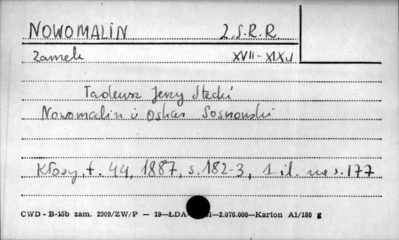 NOWOMALIN Z.S.R.R.
Zamek XVII-XIX w.
Tadeusz Jerzy Stecki
Nowomalin i Oskar Sosnowski
Kłosy, t. 44, 1887, s. 182-3, 1 il. na s. 177
CWD - B-15b zam. 2909/ZW/P — 19—ŁDA 2.076.000—Karton A1/180 g